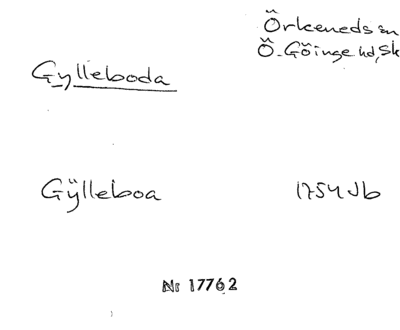 Örkeneds sn
Ö. Göinge hd, Sk
Gylleboda
Gÿlleboa 1754 Jb
Nr 17762